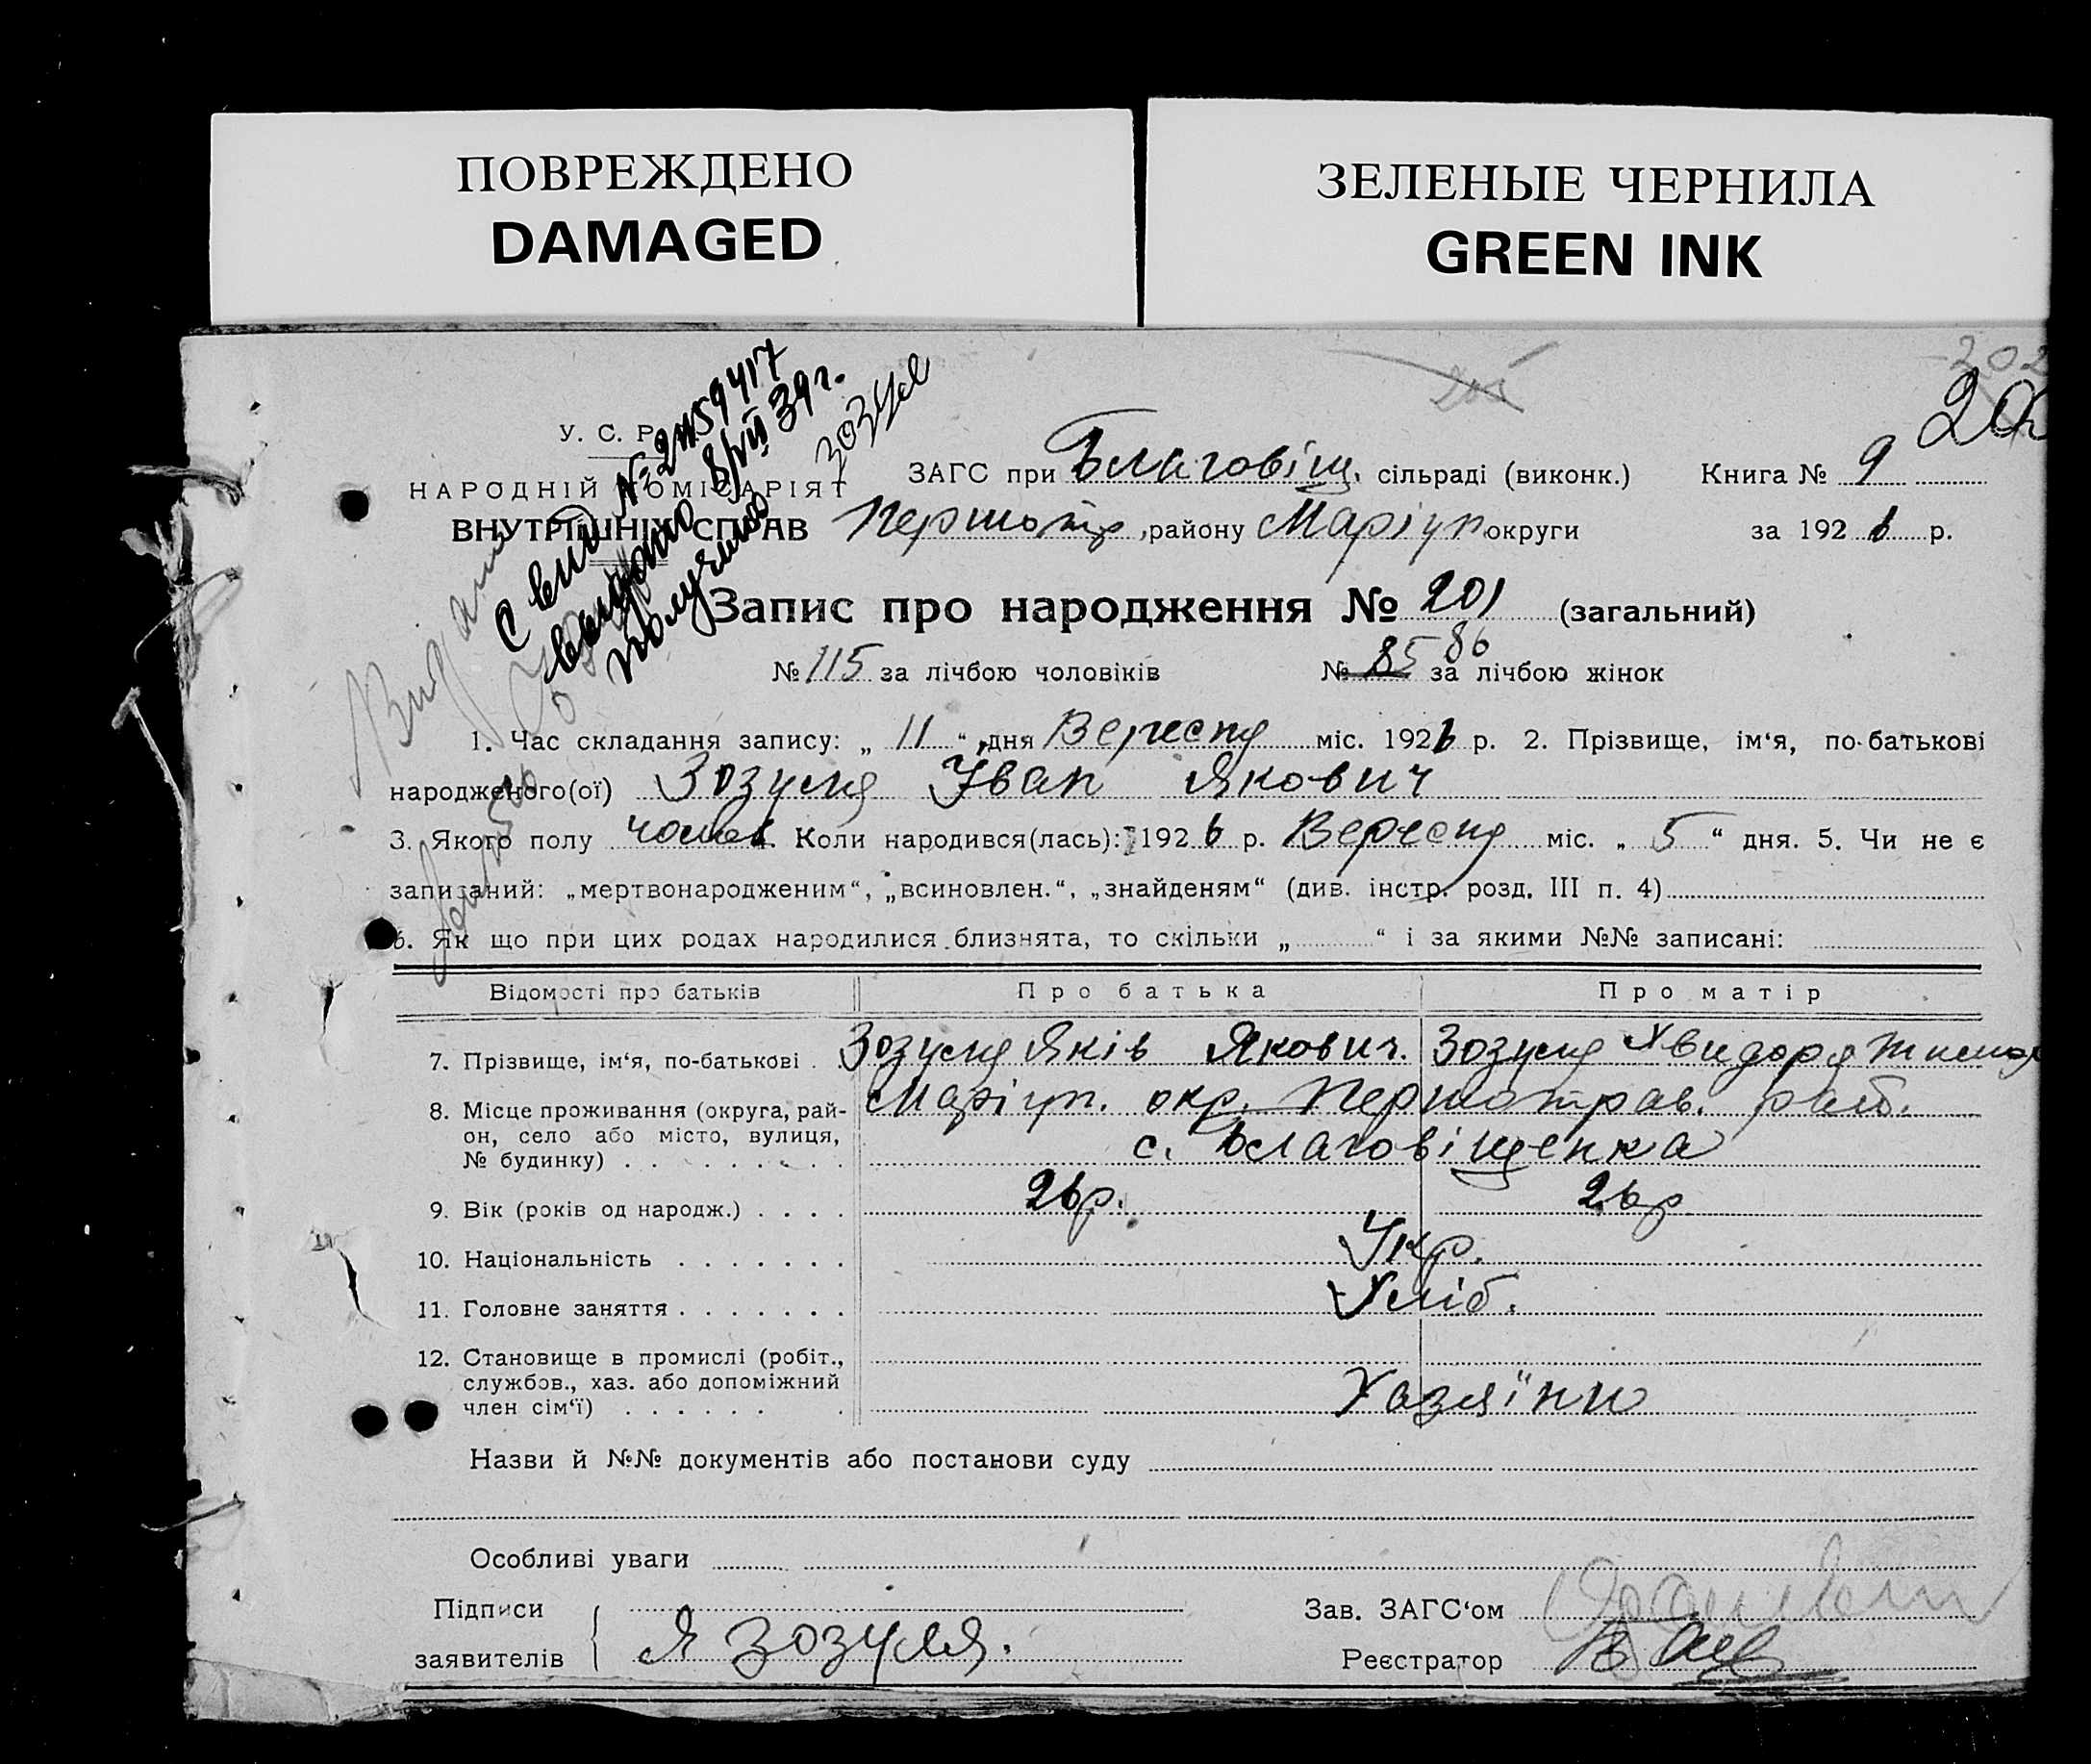 ПОВРЕЖДЕНО
DAMAGED
ЗЕЛЕНЫЕ ЧЕРНИЛА
GREEN INK
202
201
У. С. Р.
НАРОДНІЙ КОМІСАРІЯТ
ВНУТРІШНІХ СПРАВ
№ 2459417
8/VII 39 г.
получило Зозуля
ЗАГС при Благовіщ. сільраді (виконк.) Книга № 9
Першотр. району Маріуп округи за 1926 р.
Запис про народження № 201 (загальний)
№ 115 за лічбою чоловіків № 85 86 за лічбою жінок
1. Час складання запису: „ 11 “ дня Вересня міс. 1926 р. 2. Прізвище, ім‘я, по-батькові
народженого(ої) Зозуля Іван Якович
3. Якого полу чолов. Коли народився(лась): 1926 р. Вересня міс. „ 5 “ дня. 5. Чи не є
записаний: „мертвонародженим“, „всиновлен.“, „знайденям“ (див. інстр. розд. III п. 4)
6. Як що при цих родах народилися близнята, то скільки „ “ і за якими №№ записані:
Відомості про батьків Про батька Про матір
7. Прізвище, ім‘я, по-батькові . . Зозуля Яків Якович. Зозуля Хвидора
8. Місце проживання (округа, рай-
он, село або місто, вулиця,
№ будинку) . . . . . . . .
Маріуп. окр. Першотрав. рай.
с. Благовіщенка
9. Вік (років од народж.) . . . . 26 р. 26 р
10. Національність . . . . . . . Укр.
11. Головне заняття . . . . . . . Хліб.
12. Становище в промислі (робіт.,
службов., хаз. або допоміжний
член сім‘ї) . . . . . . . Хазяїни
Назви й №№ документів або постанови суду
Особливі уваги
Підписи
заявителів Я Зозуля.
Зав. ЗАГС‘ом
Реєстратор